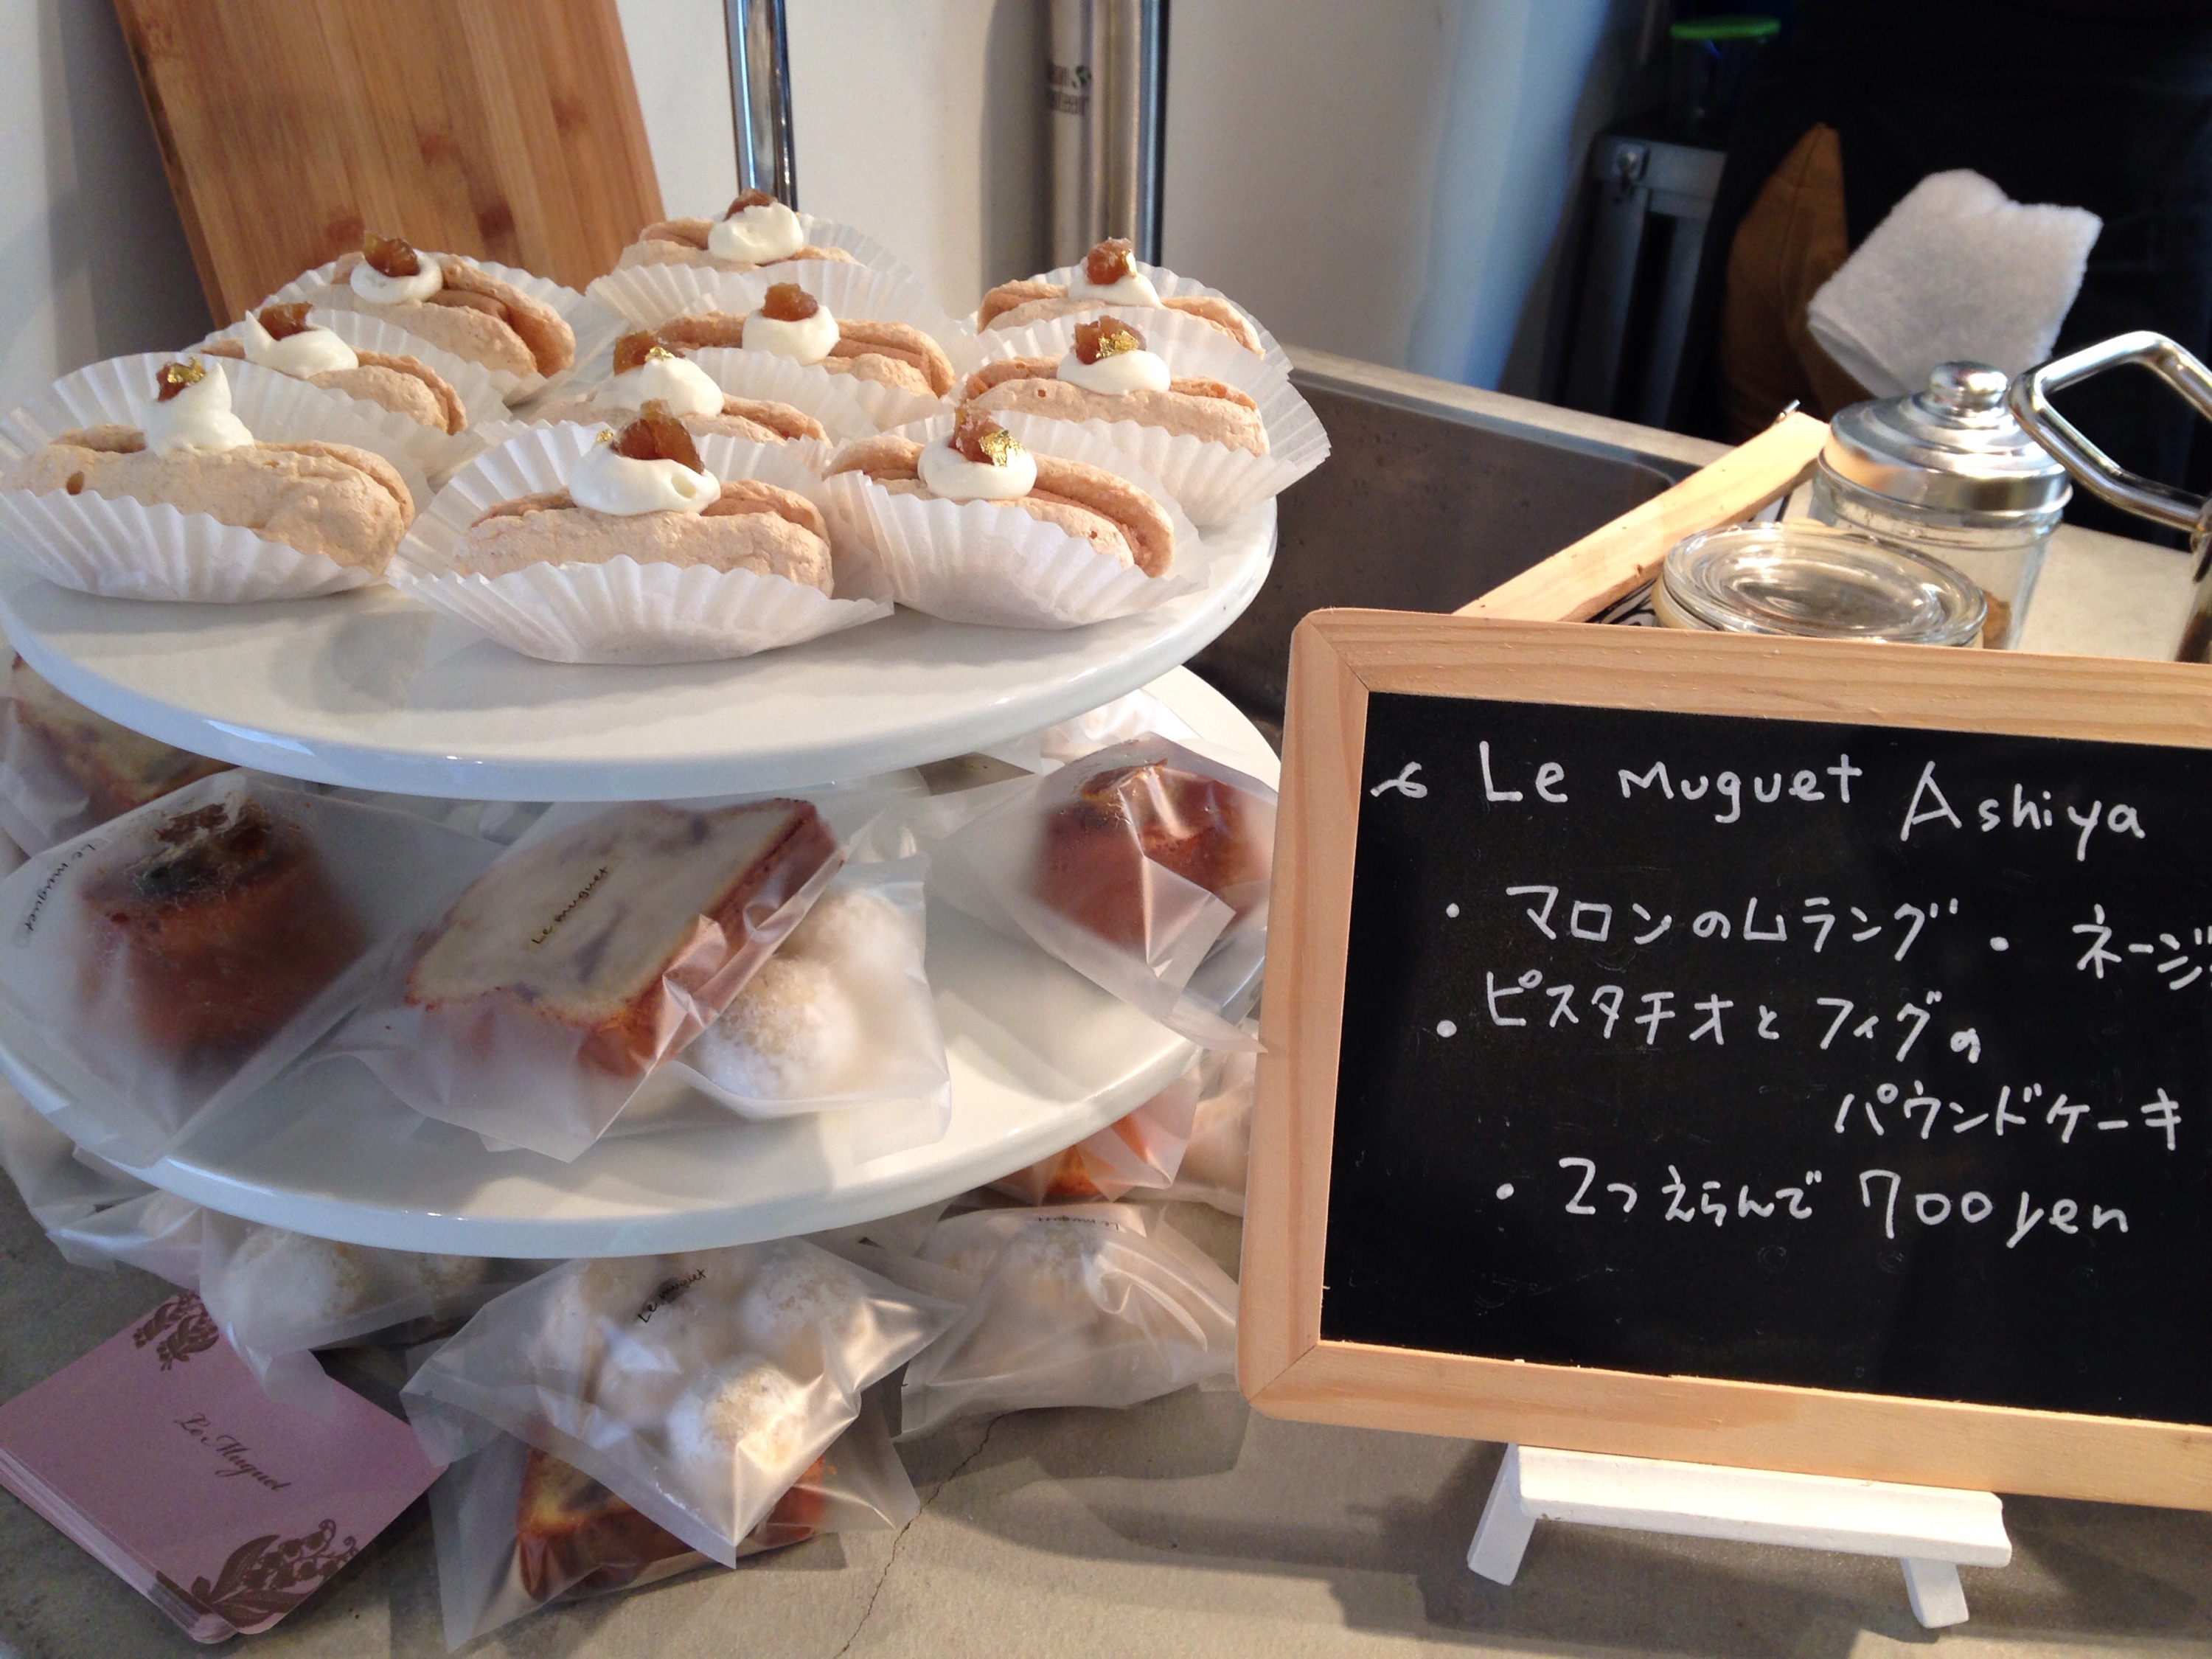 Le Muguet Ashiya
・マロンのムラング ・ネージ
・ピスタチオとフィグの
パウンドケーキ
・2つえらんで 700yen
Le muguet
Le muguet
Le muguet
Le muguet
Le Muguet